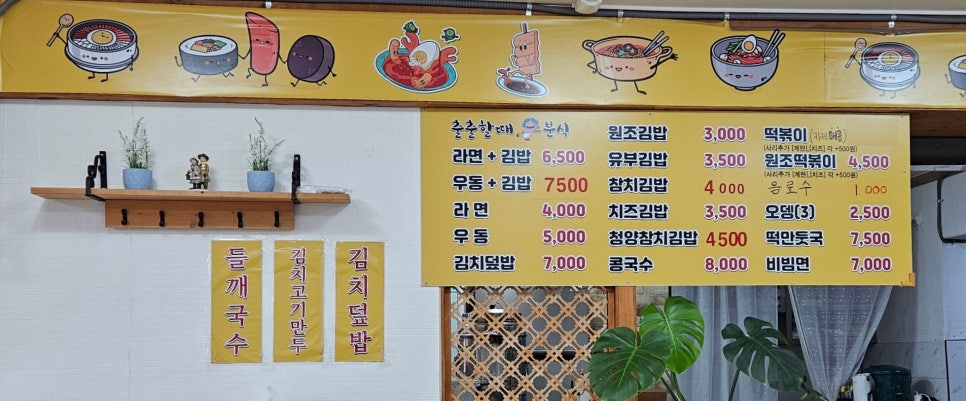 출출할때, 분식
라면 + 김밥 6,500
우동 + 김밥 7500
라면 4,000
우동 5,000
김치덮밥 7,000
원조김밥 3,000
유부김밥 3,500
참치김밥 4000
치즈김밥 3,500
청양참치김밥 4500
콩국수 8,000
떡볶이
(사리추가 [계란],[치즈] 각 +500원)
원조떡볶이 4,500
(사리추가 [계란],[치즈] 각 +500원)
음료수 1000
오뎅(3) 2,500
떡만둣국 7,500
비빔면 7,000
들깨국수
김치고기만두
김치덮밥